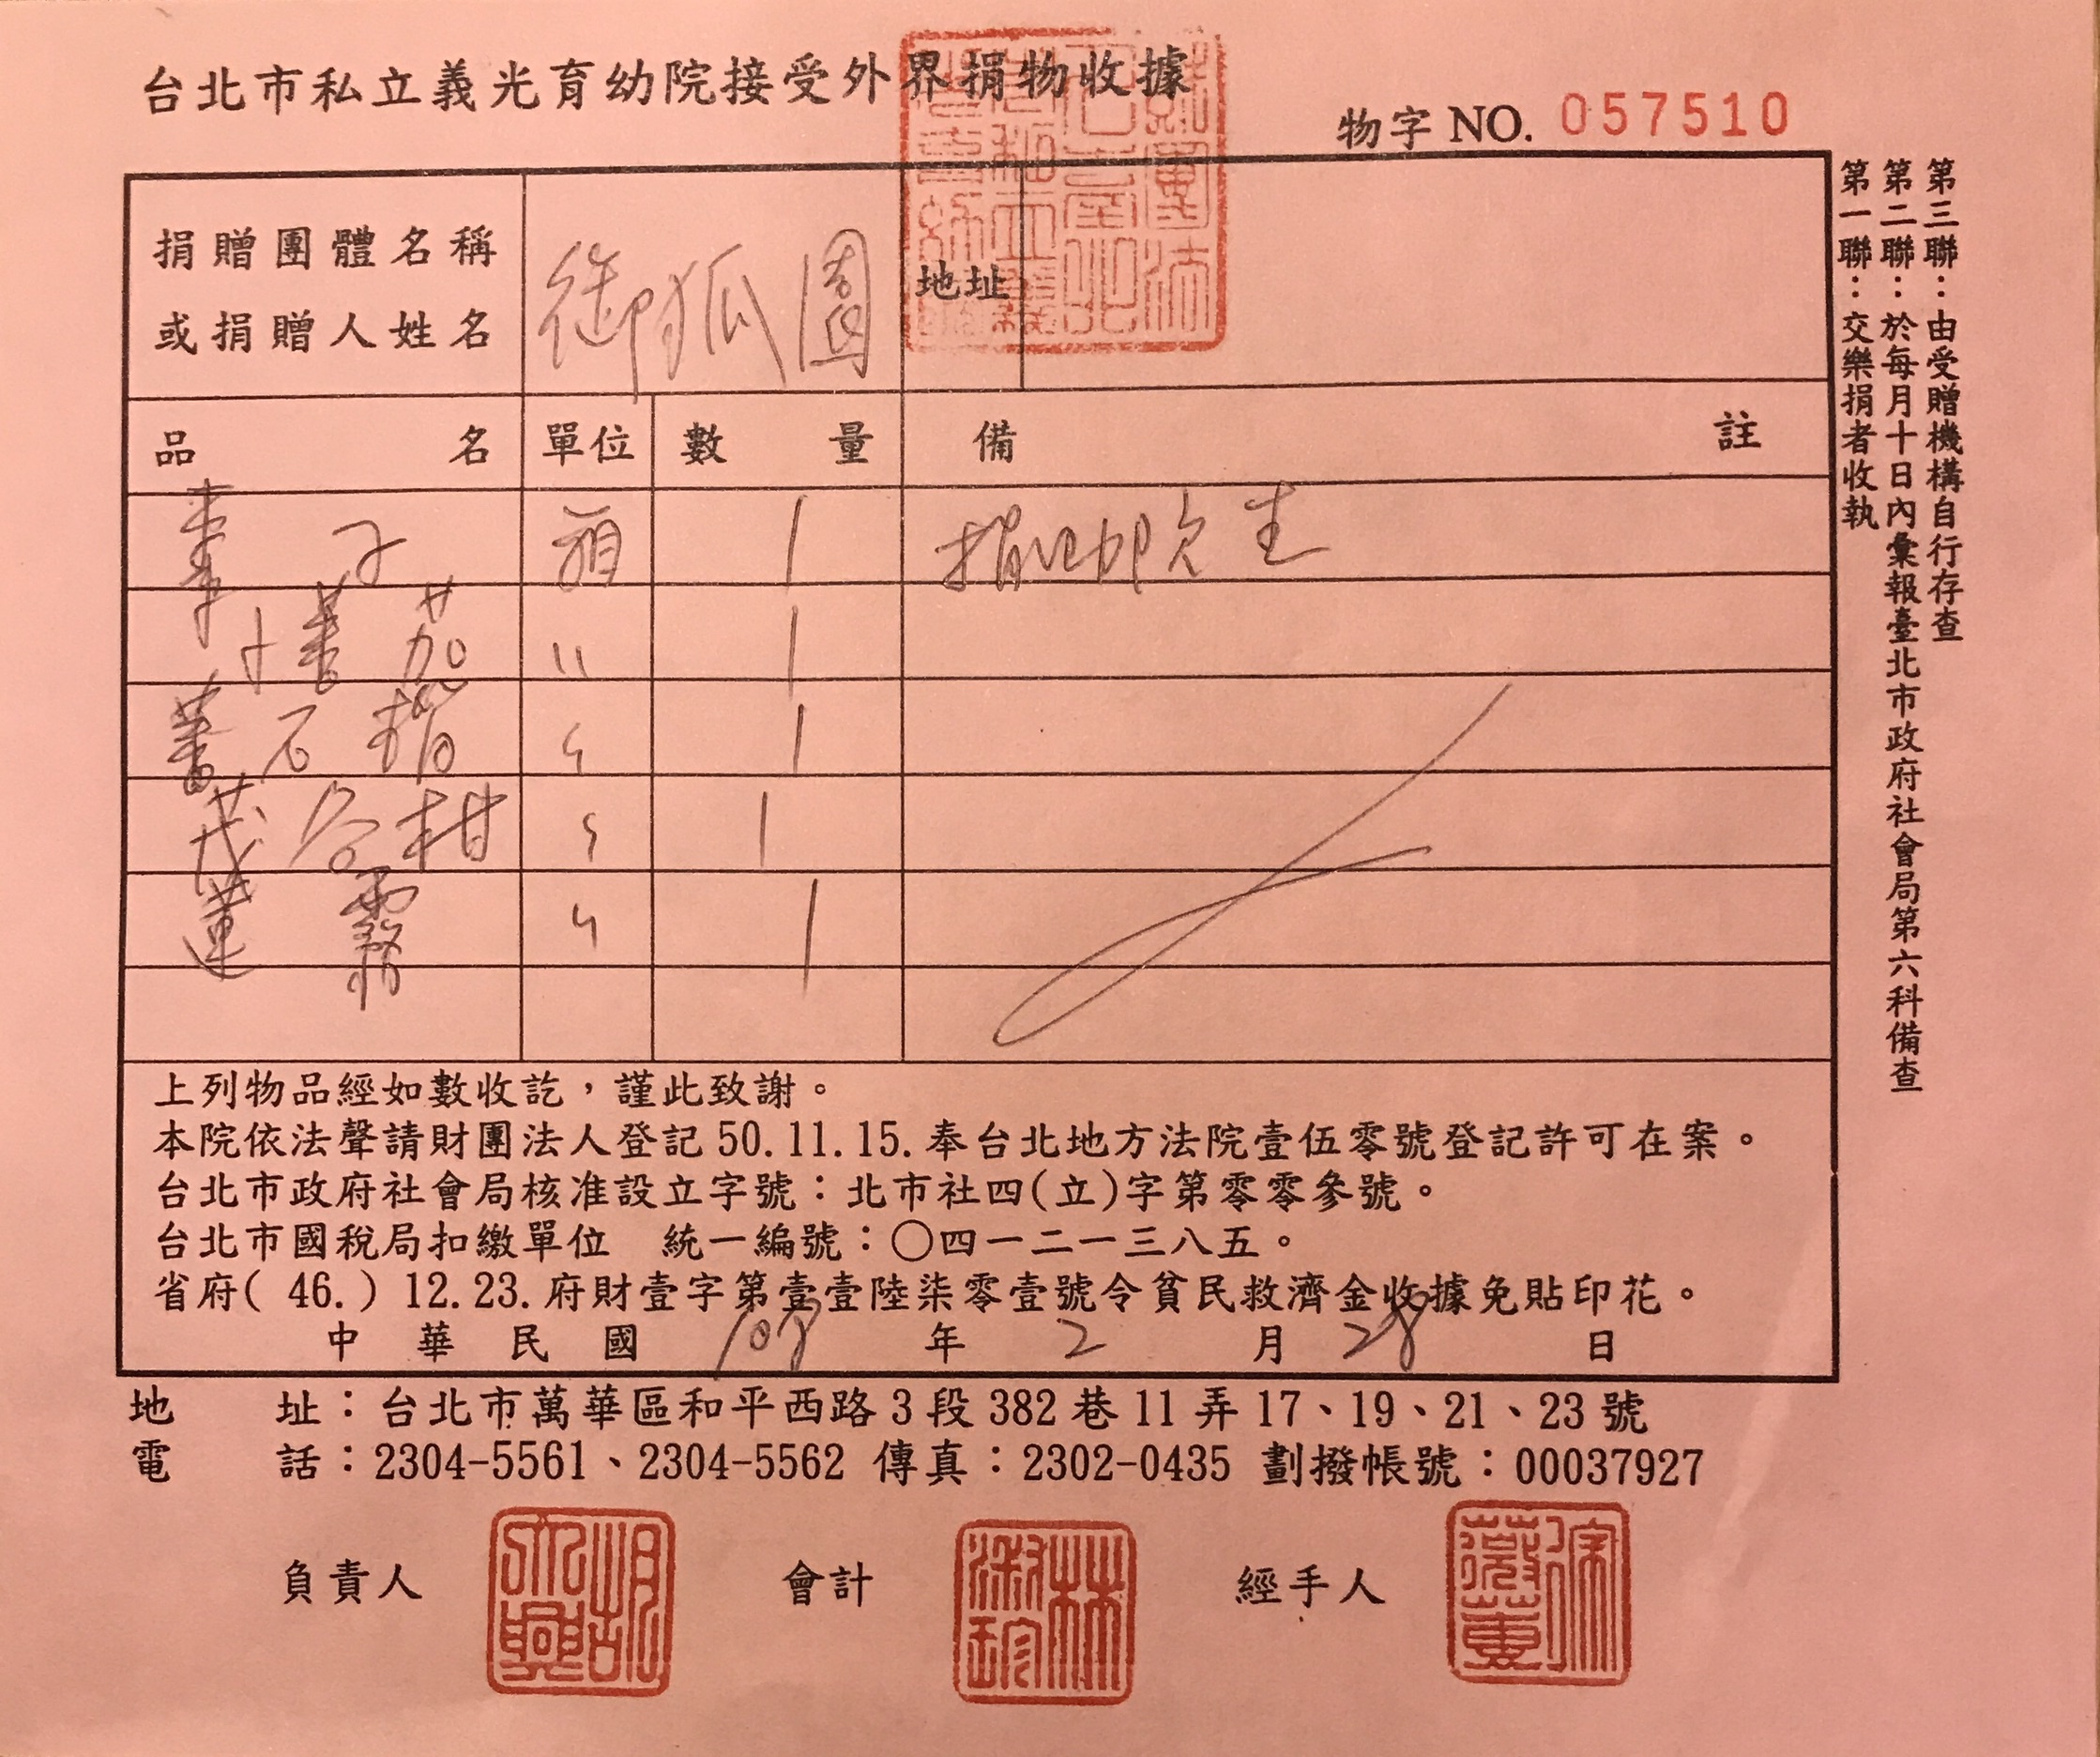 台北市私立義光育幼院接受外界捐物收據
物字 NO. 057510
捐贈團體名稱
或捐贈人姓名
御狐園
地址
品名 單位 數量 備註
棗子 箱 1
番茄 〃 1
蕃石榴 〃 1
茂谷柑 〃 1
蓮霧 〃 1
上列物品經如數收訖，謹此致謝。
本院依法聲請財團法人登記 50.11.15.奉台北地方法院壹伍零號登記許可在案。
台北市政府社會局核准設立字號：北市社四(立)字第零零參號。
台北市國稅局扣繳單位 統一編號：〇四一二一三八五。
省府( 46.) 12.23.府財壹字第壹壹陸柒零壹號令貧民救濟金收據免貼印花。
中華民國 108 年 2 月 28 日
地址：台北市萬華區和平西路 3 段 382 巷 11 弄 17、19、21、23 號
電話：2304-5561、2304-5562 傳真：2302-0435 劃撥帳號：00037927
負責人 會計 經手人
第三聯：由受贈機構自行存查
第二聯：於每月十日內彙報臺北市政府社會局第六科備查
第一聯：交樂捐者收執